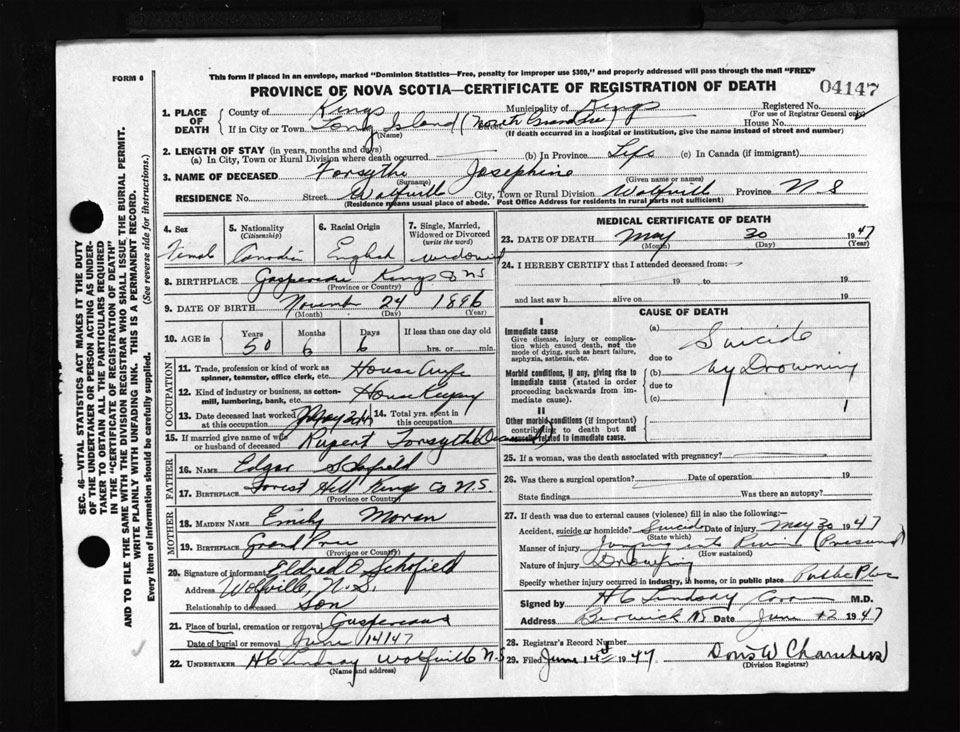 This form if placed in an envelope, marked "Dominion Statistics—Free, penalty for improper use $300," and properly addressed will pass through the mail "FREE"
FORM 6
PROVINCE OF NOVA SCOTIA—CERTIFICATE OF REGISTRATION OF DEATH
04147
1. PLACE OF DEATH
County of Kings Municipality of Kings Registered No.
(For use of Registrar General only)
If in City or Town Long Island (North Grand Pre) House No.
(Name) (If death occurred in a hospital or institution, give the name instead of street and number)
2. LENGTH OF STAY (in years, months and days)
(a) In City, Town or Rural Division where death occurred (b) In Province Life (c) In Canada (if immigrant)
3. NAME OF DECEASED Forsythe Josephine
(Surname) (Given name or names)
RESIDENCE No. Street Wolfville City, Town or Rural Division Wolfville Province N S
(Residence means usual place of abode. Post Office Address for residents in rural parts not sufficient)
4. Sex
Female
5. Nationality
(Citizenship)
Canadian
6. Racial Origin
English
7. Single, Married, Widowed or Divorced
(write the word)
widowed
8. BIRTHPLACE Gaspereau Kings Co NS
(Province or Country)
9. DATE OF BIRTH November 24 1896
(Month) (Day) (Year)
10. AGE in
Years Months Days If less than one day old
50 6 6 hrs. or min.
OCCUPATION
11. Trade, profession or kind of work as spinner, teamster, office clerk, etc. House wife
12. Kind of industry or business, as cotton-mill, lumbering, bank, etc. House Keeping
13. Date deceased last worked at this occupation May 30/47
14. Total yrs. spent in this occupation
15. If married give name of wife or husband of deceased Rupert Forsythe (Deceased)
FATHER
16. NAME Edgar Schofield
17. BIRTHPLACE Forest Hill Kings Co N.S.
(Province or Country)
MOTHER
18. MAIDEN NAME Emily Moran
19. BIRTHPLACE Grand Pre
(Province or Country)
20. Signature of informant Eldred O. Schofield
Address Wolfville, N.S.
Relationship to deceased Son
21. Place of burial, cremation or removal Gaspereau
Date of burial or removal June 14/47
22. UNDERTAKER H C Lindsay Wolfville N.S
(Name and address)
MEDICAL CERTIFICATE OF DEATH
23. DATE OF DEATH May 30 1947
(Month) (Day) (Year)
24. I HEREBY CERTIFY that I attended deceased from:
19 to 19
and last saw h alive on 19
CAUSE OF DEATH
I
Immediate cause
Give disease, injury or complication which caused death, not the mode of dying, such as heart failure, asphyxia, asthenia, etc.
(a) Suicide
due to
Morbid conditions, if any, giving rise to immediate cause (stated in order proceeding backwards from immediate cause).
(b) by Drowning
due to
(c)
1
II
Other morbid conditions (if important) contributing to death but not causally related to immediate cause.
25. If a woman, was the death associated with pregnancy?
26. Was there a surgical operation? Date of operation 19
State findings Was there an autopsy?
27. If death was due to external causes (violence) fill in also the following:—
Accident, suicide or homicide? Suicide Date of injury May 30 1947
(State which)
Manner of injury Jumping into River (Presumed)
(How sustained)
Nature of injury Drowning
Specify whether injury occurred in industry, in home, or in public place Public Place
Signed by H C Lindsay M.D.
Address Berwick NS Date June 12 1947
28. Registrar's Record Number
29. Filed June 14th 1947
(Division Registrar)
SEC. 46—VITAL STATISTICS ACT MAKES IT THE DUTY
OF THE UNDERTAKER OR PERSON ACTING AS UNDERTAKER
TO OBTAIN ALL THE PARTICULARS REQUIRED
IN THE "CERTIFICATE OF REGISTRATION OF DEATH"
AND TO FILE THE SAME WITH THE DIVISION REGISTRAR WHO SHALL ISSUE THE BURIAL PERMIT.
WRITE PLAINLY WITH UNFADING INK. THIS IS A PERMANENT RECORD.
Every item of information should be carefully supplied. (See reverse side for instructions.)